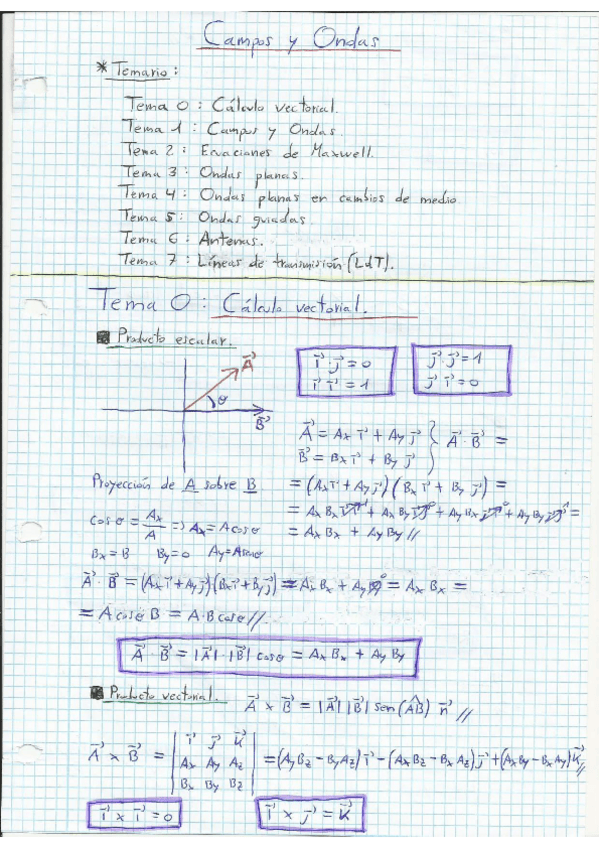 Campos y Ondas
* Temario:
Tema 0: Cálculo vectorial.
Tema 1: Campos y Ondas.
Tema 2: Ecuaciones de Maxwell.
Tema 3: Ondas planas.
Tema 4: Ondas planas en cambios de medio.
Tema 5: Ondas guiadas.
Tema 6: Antenas.
Tema 7: Líneas de transmisión (LdT).
Tema 0: Cálculo vectorial.
Producto escalar.
A⃗
θ
B⃗
i⃗ j⃗ = 0
i⃗ i⃗ = 1
j⃗ · j⃗ = 1
j⃗ i⃗ = 0
A⃗ = Ax i⃗ + Ay j⃗ } A⃗ · B⃗ =
B⃗ = Bx i⃗ + By j⃗
= (Ax i⃗ + Ay j⃗)(Bx i⃗ + By j⃗) =
= Ax Bx i⃗ i⃗¹ + Ax By i⃗ j⃗⁰ + Ay Bx j⃗ i⃗⁰ + Ay By j⃗ j⃗¹ =
= Ax Bx + Ay By //
Proyección de A sobre B
cos θ = Ax/A => Ax = A cos θ
Bx = B By = 0 Ay = A sen θ
A⃗ · B⃗ = (Ax i⃗ + Ay j⃗)(Bx i⃗ + By j⃗) = Ax Bx + Ay By⁰ = Ax Bx =
= A cos θ B = A · B cos θ //
A⃗ · B⃗ = |A⃗| · |B⃗| cos θ = Ax Bx + Ay By
Producto vectorial. A⃗ x B⃗ = |A⃗| |B⃗| sen (AB) n⃗ //
A⃗ x B⃗ = | i⃗ j⃗ k⃗ | = (Ay Bz - By Az) i⃗ - (Ax Bz - Bx Az) j⃗ + (Ax By - Bx Ay) k⃗ //
Ax Ay Az
Bx By Bz
i⃗ x i⃗ = 0
i⃗ x j⃗ = k⃗